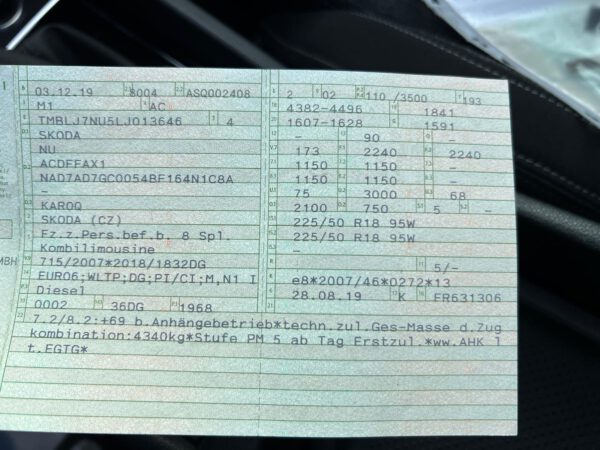 03.12.19 8004 ASQ002408
M1 AC
TMBLJ7NU5LJ013646 4
SKODA
NU
ACDFFAX1
NAD7AD7GC0054BF164N1C8A
–
KAROQ
SKODA (CZ)
Fz.z.Pers.bef.b. 8 Spl.
Kombilimousine
715/2007*2018/1832DG
EURO6;WLTP;DG;PI/CI;M,N1 I
Diesel
0002 36DG 1968
2 02 110 /3500 193
4382-4496 1841
1607-1628 1591
– 90 –
173 2240 2240
1150 1150 –
1150 1150 –
75 3000 68
2100 750 5 –
225/50 R18 95W
225/50 R18 95W
–
5/–
e8*2007/46*0272*13
28.08.19 K FR631306
7.2/8.2:+69 b.Anhängebetrieb*techn.zul.Ges-Masse d.Zug
kombination:4340kg*Stufe PM 5 ab Tag Erstzul.*ww.AHK l
t.EGTG*
MBH